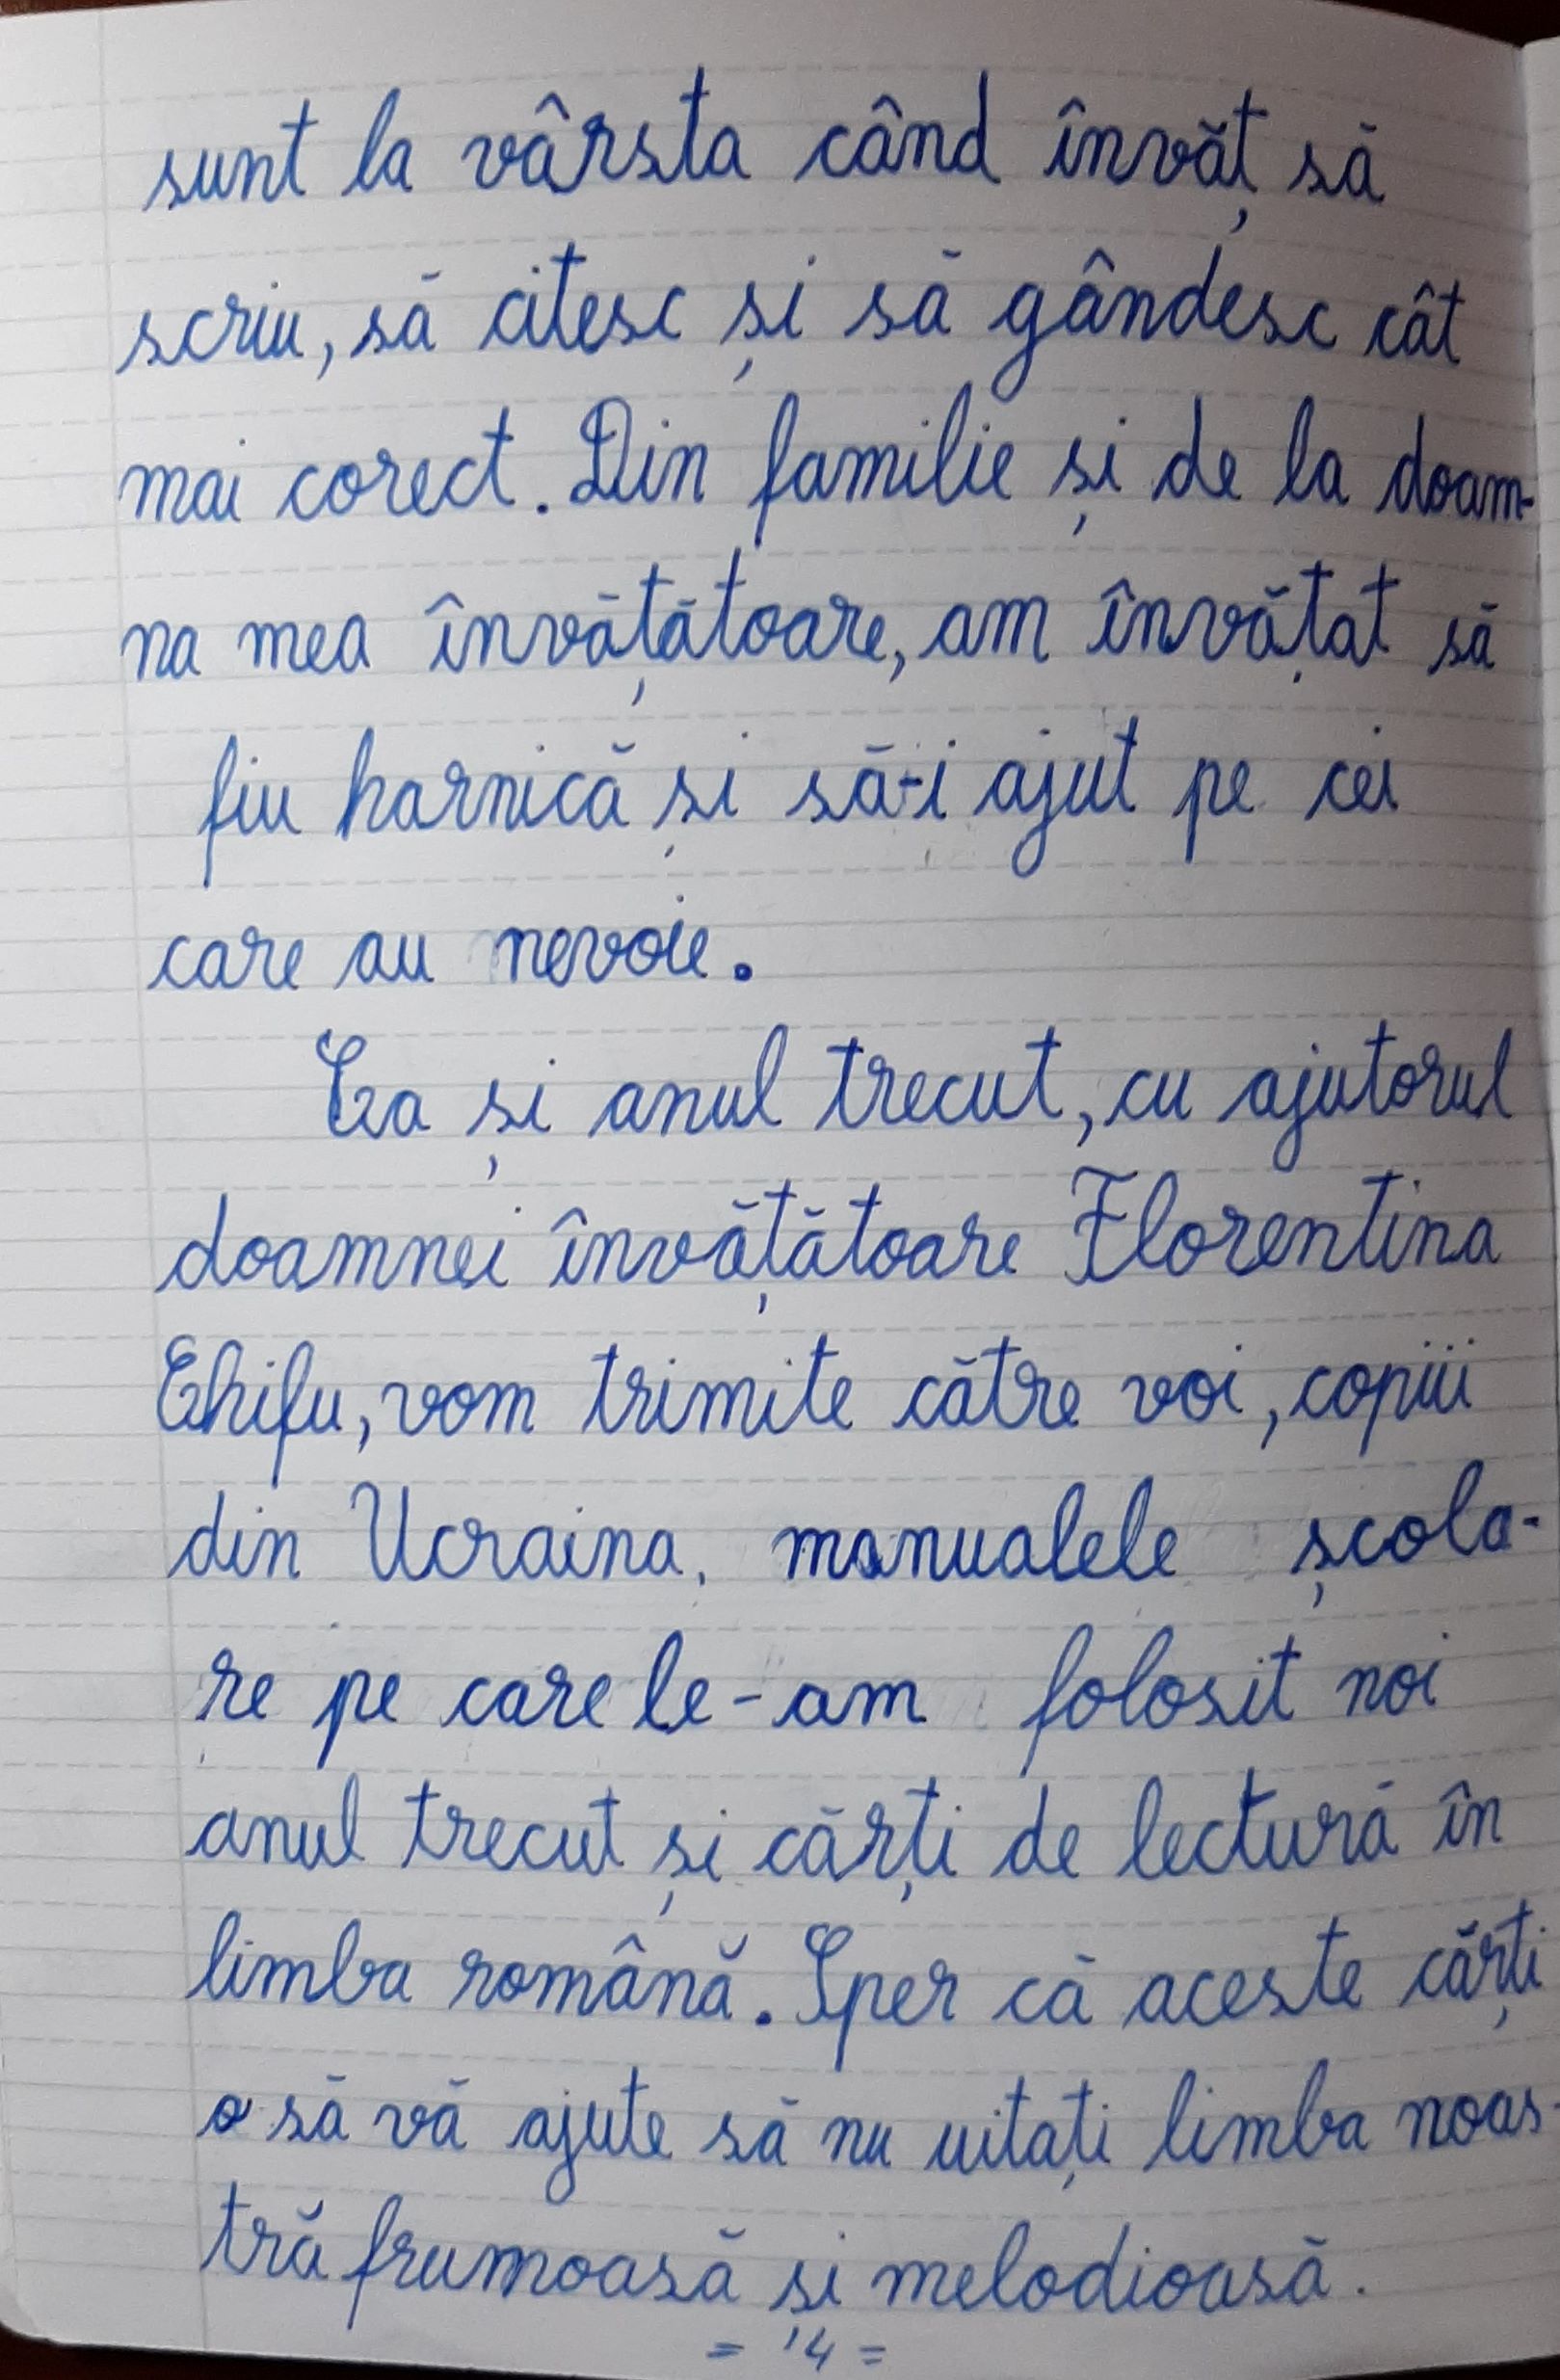 sunt la vârsta când învăț să
scriu, să citesc și să gândesc cât
mai corect. Din familie și de la doam-
na mea învățătoare, am învățat să
fiu harnică și să-i ajut pe cei
care au nevoie.
Ca și anul trecut, cu ajutorul
doamnei învățătoare Florentina
Chifu, vom trimite către voi, copiii
din Ucraina, manualele școla-
re pe care le-am folosit noi
anul trecut și cărți de lectură în
limba română. Sper că aceste cărți
o să vă ajute să nu uitați limba noas-
tră frumoasă și melodioasă.
= 14 =